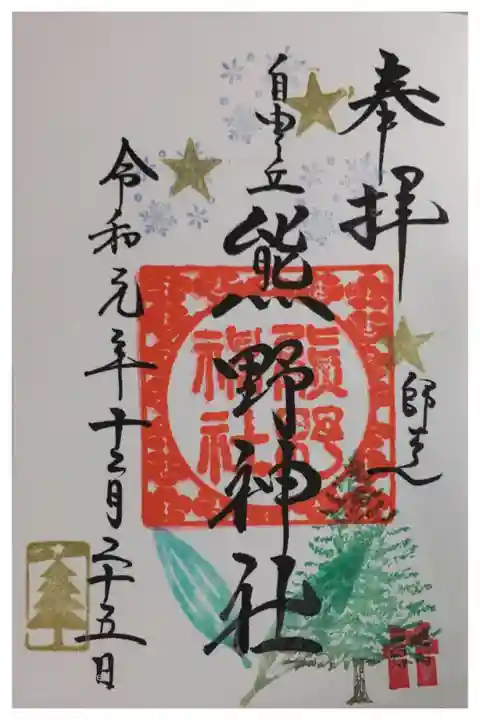 奉拝
師走
自由丘
熊野神社
熊野
神社
令和元年十二月二十五日